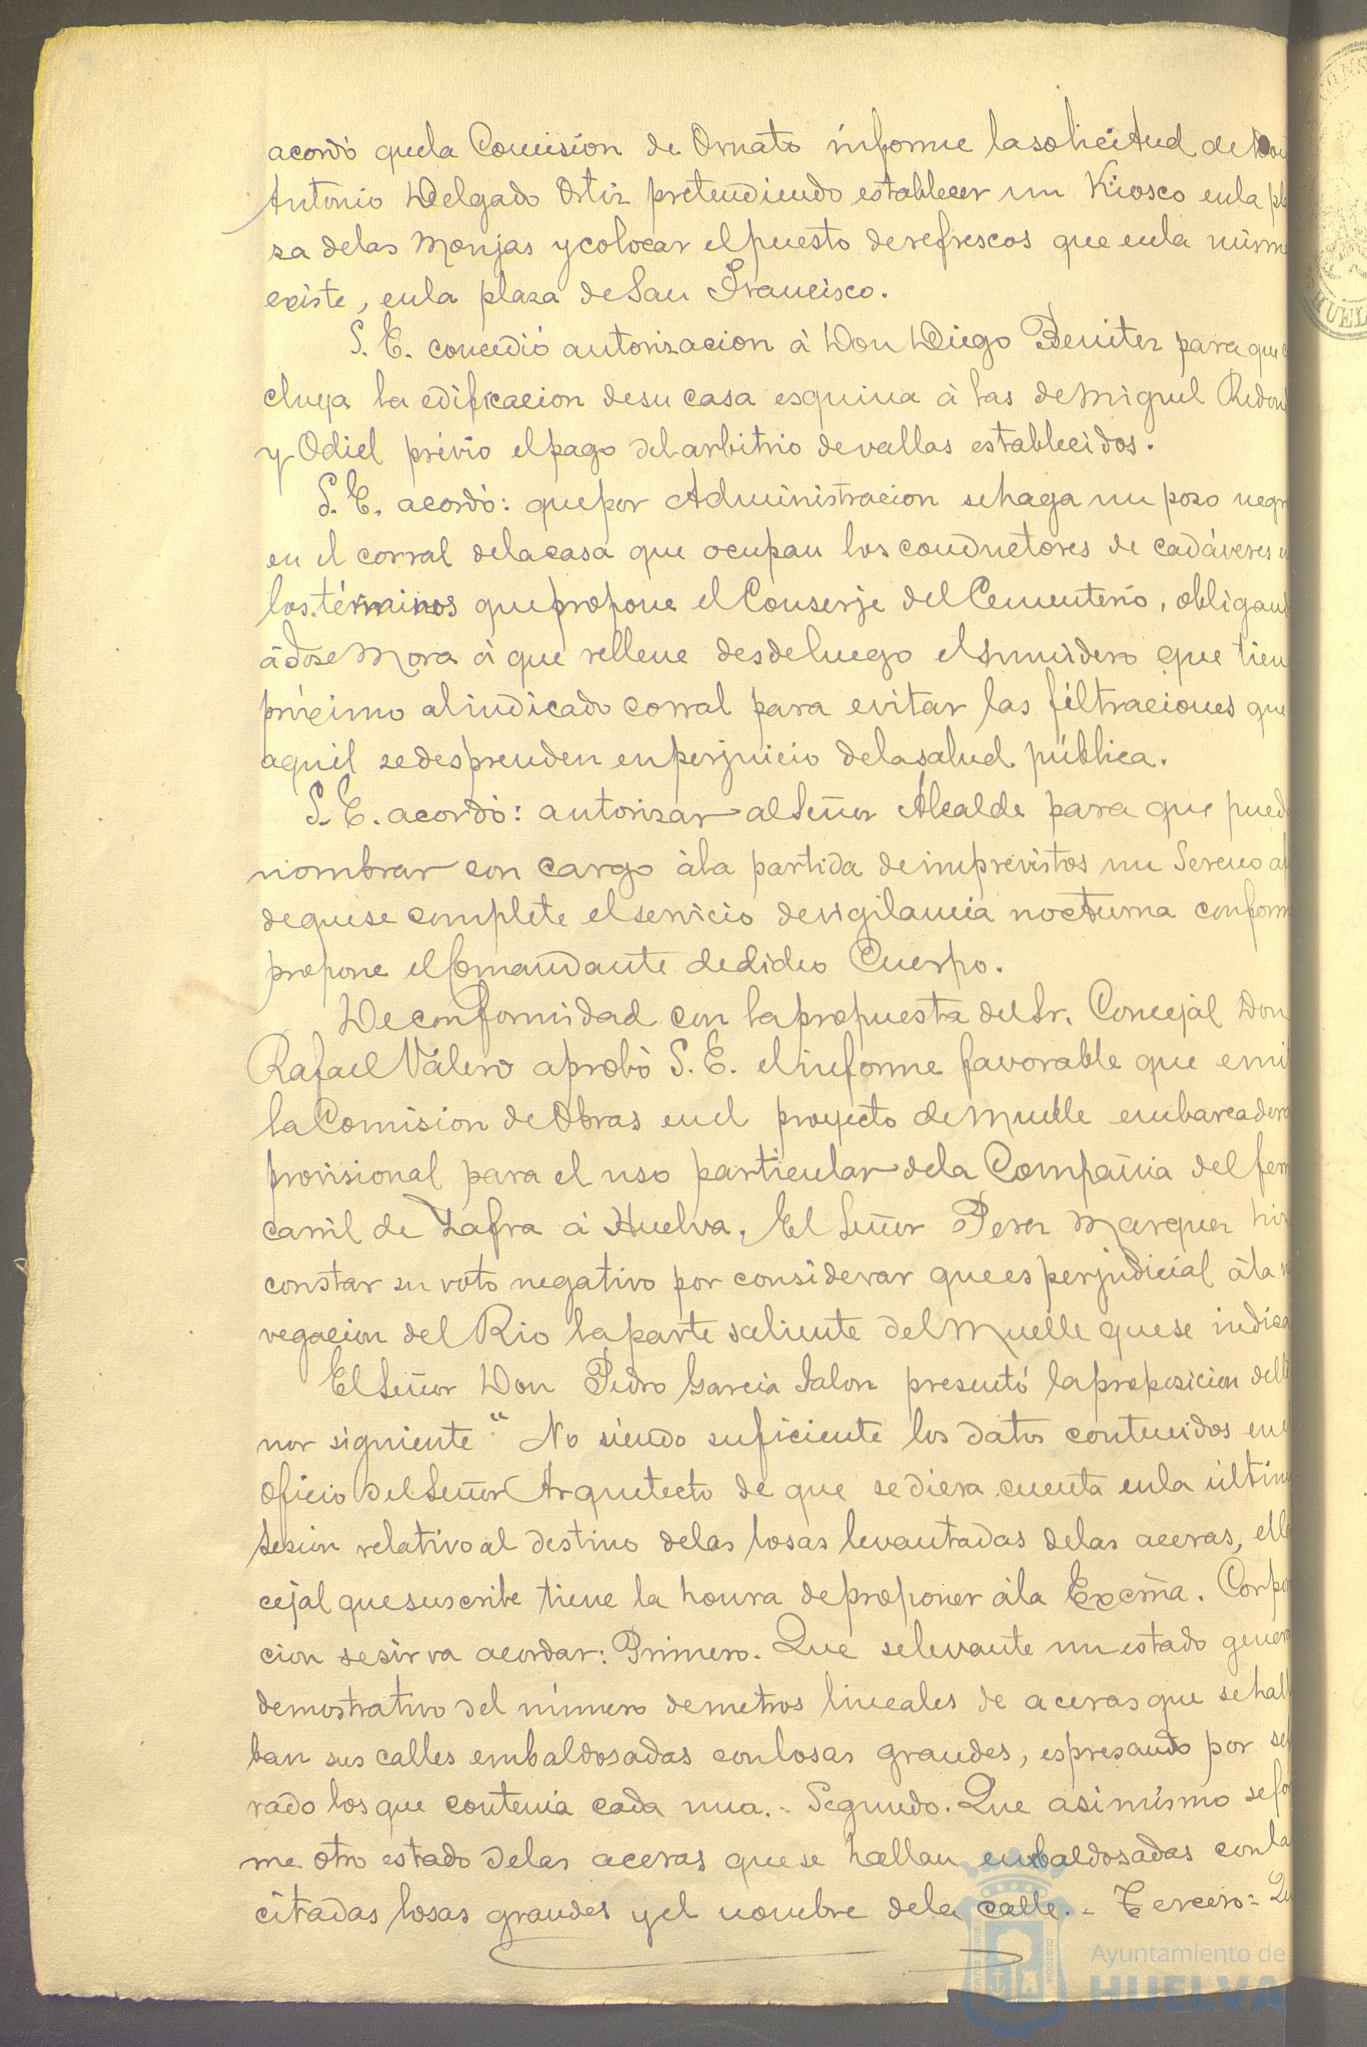 acordó que la Comisión de Ornato informe la solicitud de Don
Antonio Delgado Ortiz pretendiendo establecer un Kiosco en la pla
za de las Monjas y colocar el puesto de refrescos que en la misma
existe, en la plaza de San Francisco.
S. E. concedió autorizacion á Don Diego Benitez para que
cluya la edificacion de su casa esquina á las de Miguel Redon
y Odiel prévio el pago del arbitrio de vallas establecidos.
S. E. acordó: que por Administracion se haga un pozo negr
en el corral de la casa que ocupan los conductores de cadáveres e
los términos que propone el Conserje del Cementerio, obligan
á José Mora á que rellene desde luego el sumidero que tien
próximo al indicado corral para evitar las filtraciones que
aquél se desprenden en perjuicio de la salud pública.
S. E. acordó: autorizar al Señor Alcalde para que pued
nombrar con cargo á la partida de imprevistos un Sereno a
de que se complete el servicio de vigilancia nocturna conform
propone el Comandante de dicho Cuerpo.
De conformidad con la propuesta del Sr. Concejal Don
Rafael Valero aprobó S. E. el informe favorable que emi
la Comision de Obras en el proyecto de Muelle embarcadero
provisional para el uso particular de la Compañia del ferro
carril de Zafra á Huelva. El Señor Perez Marquez hiz
constar su voto negativo por considerar que es perjudicial á la
vegacion del Rio la parte saliente del Muelle que se indica
El Señor Don Pedro Garcia Jalon presentó la proposicion del te
nor siguiente "No siendo suficiente los datos contenidos en
oficio del Señor Arquetecto de que se diera cuenta en la última
sesion relativo al destino de las losas levantadas de las aceras, el Co
cejal que suscribe tiene la honra de proponer á la Excma. Corpo
cion se sirva acordar: Primero. Que se levante un estado genera
demostrativo del número de metros lineales de aceras que se hall
ban sus calles embaldosadas con losas grandes, espresando por se
rado los que contenia cada una.- Segundo. Que asimismo se for
me otro estado de las aceras que se hallan embaldosadas con la
citadas losas grandes y el nombre de la calle.- Tercero= Qu
Ayuntamiento de
HUELVA